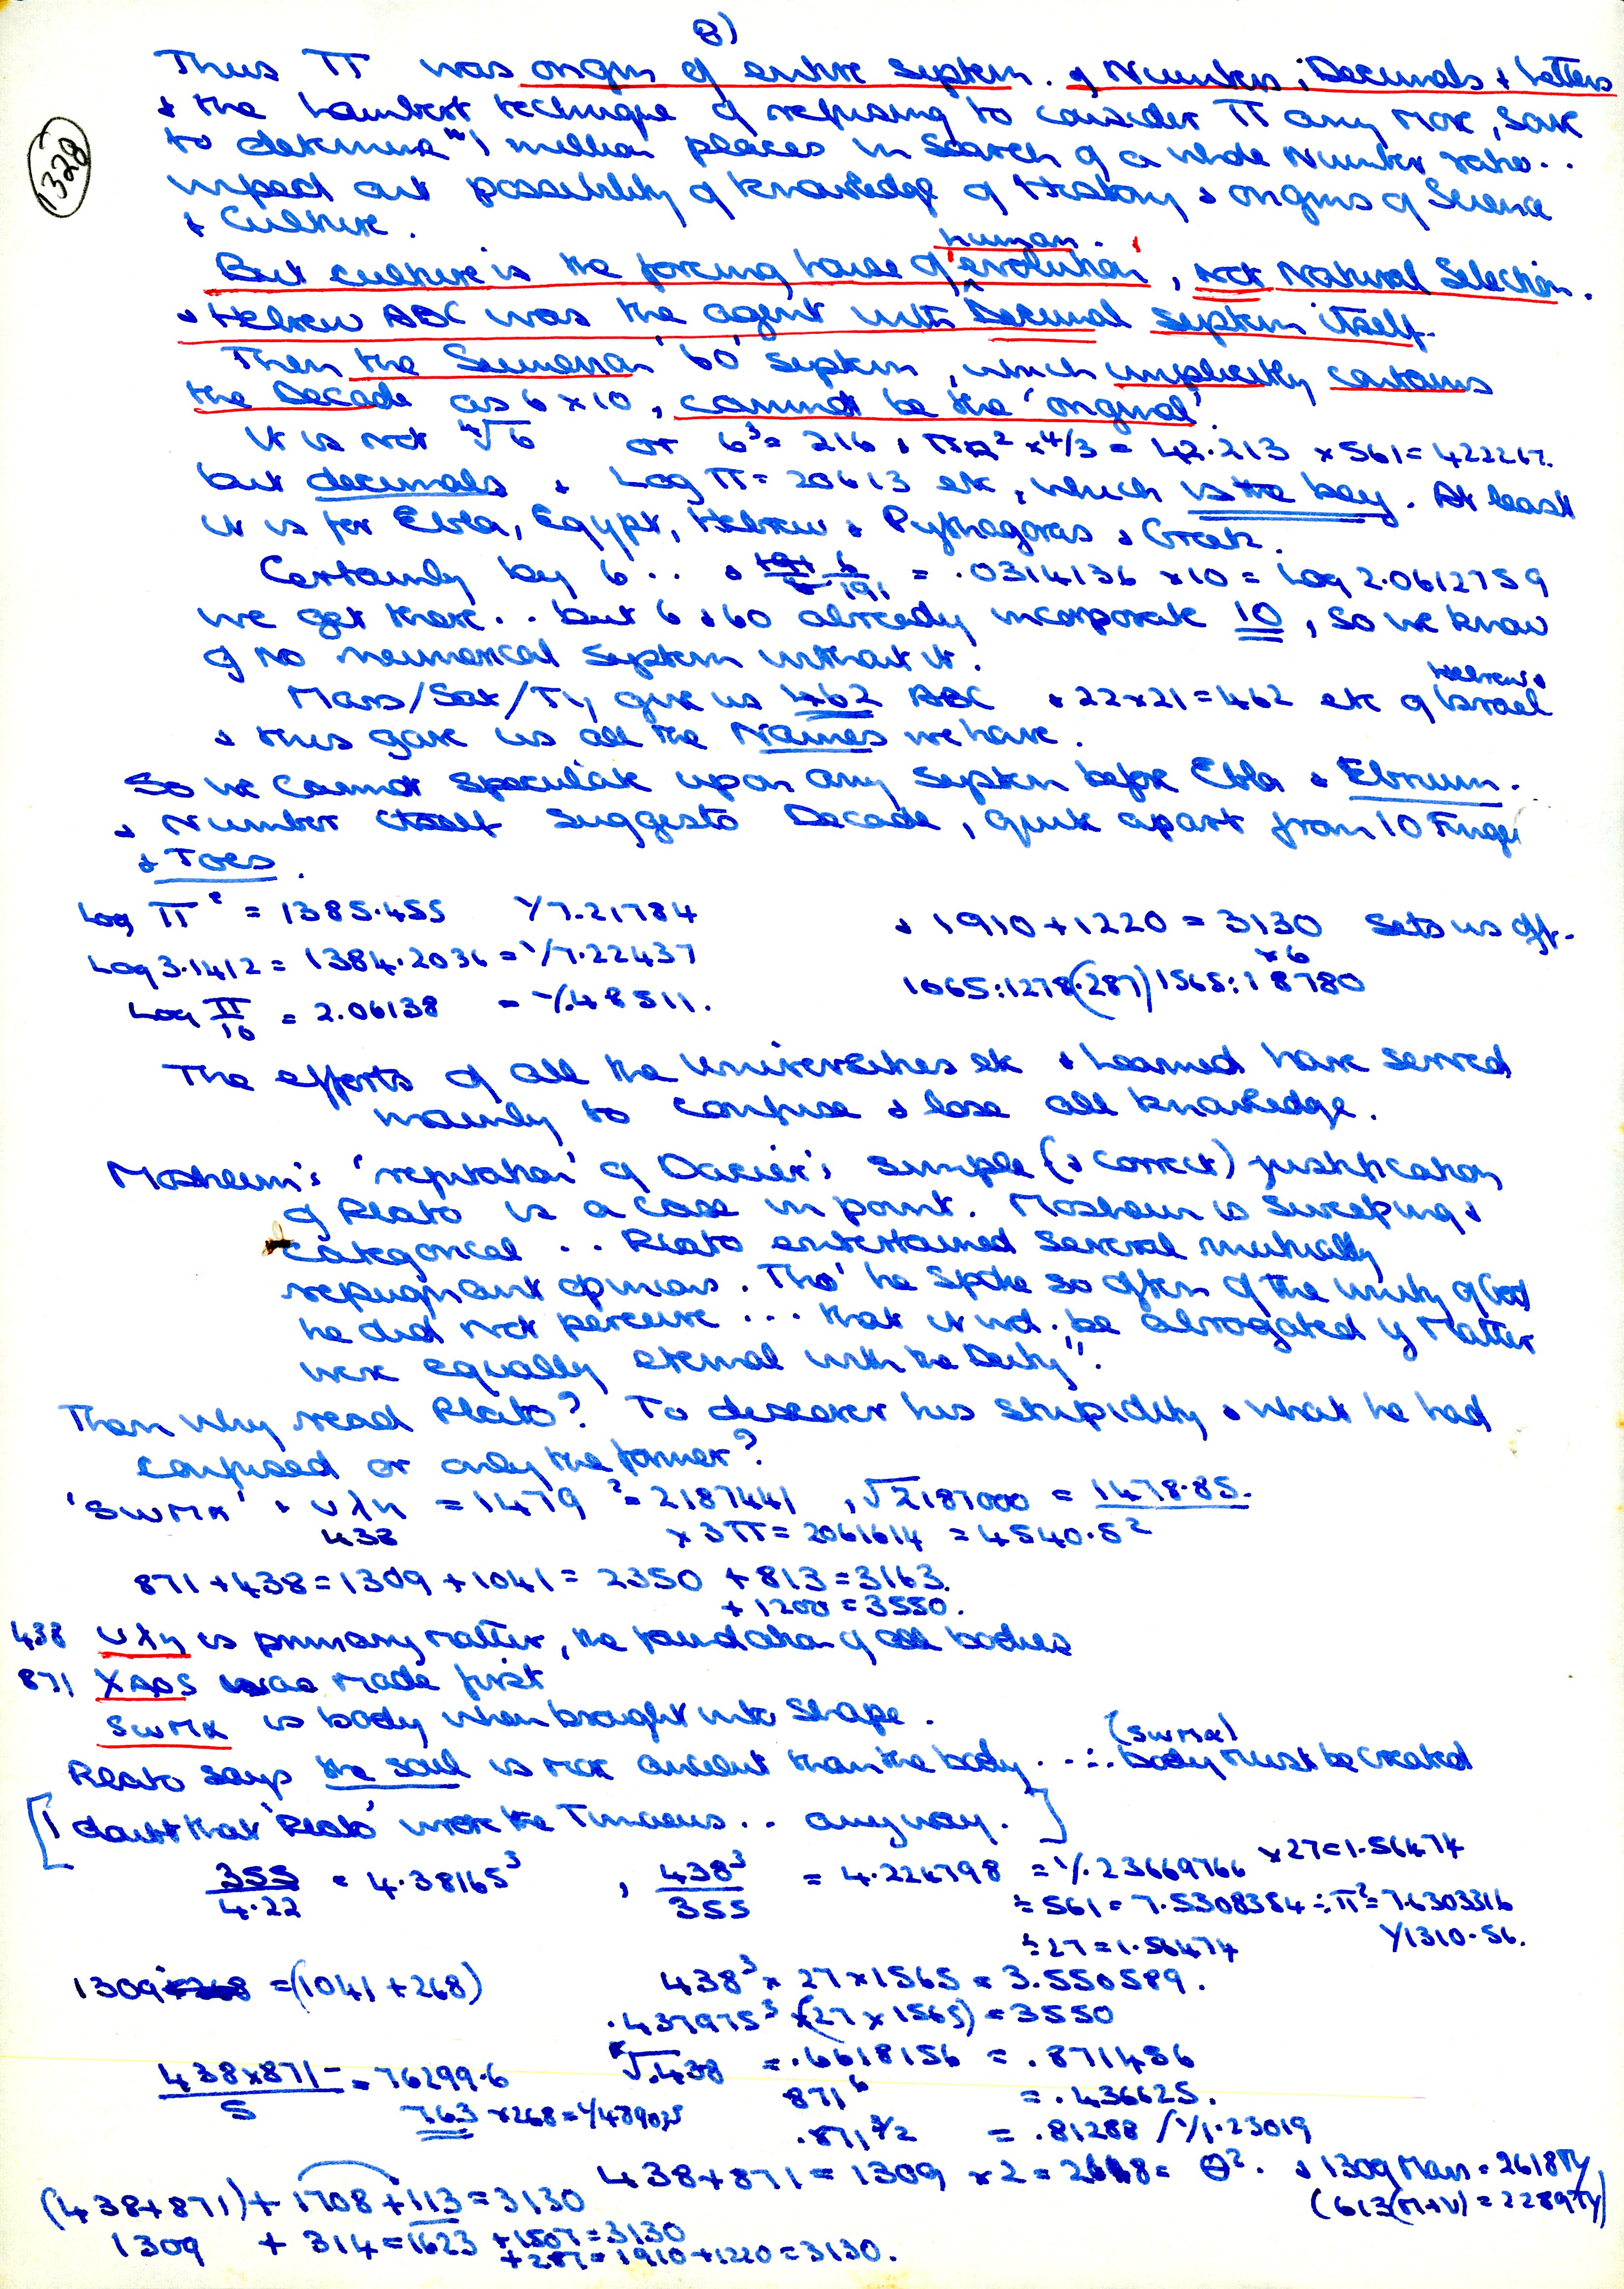 8)
1328
Thus π was origin of entire system. of Numbers; Decimals + Letters
+ the Lambert technique of refusing to consider π any more, save
to determine 1 million places in search of a whole Number ratio..
out possibility of knowledge of History & origins of Science
+ Culture.
human.
But culture is the forcing house of evolution, not Natural Selection.
& Hebrew ABC was the agent with Decimal system itself.
Then the Sumerian '60' system, which implicitly contains
the Decade as 6 x 10, cannot be the 'original'.
It is not √6 or 6³ = 216, x 4/3 = 42.213 x 561 = 422267.
but decimals + Log π = 20613 etc, which is the key. At least
it is for Ebla, Egypt, Hebrew & Pythagoras & Greek.
Certainly by 6 .. & 6/191 = .0314136 x 10 = Log 2.0612759
we get there.. but 6 & 60 already incorporate 10, so we know
of no numerical system without it.
Hebrew &
Mars/Sat/Ty give us 462 ABC & 22x21 = 462 etc of Israel
& thus gave us all the Names we have.
So we cannot speculate upon any system before Ebla & Ebrum.
& Number itself suggests Decade, quite apart from 10 Finger
+ Toes.
Log π² = 1385.455 1/7.21784
& 1910 + 1220 = 3130 sets us off.
Log 3.1412 = 1384.2036 = 1/7.22437
x 6
1065:1278(.287)1565:18780
Log π/10 = 2.06138 = 1/.48511.
The efforts of all the Universities etc & Learned have served
mainly to confuse & lose all knowledge.
Mosheim's 'refutation' of Dacier's simple (& correct) justification
of Plato is a case in point. Mosheim is sweeping &
categorical .. Plato entertained several mutually
repugnant opinions. Tho' he spoke so often of the unity of God
he did not perceive ... that it wd. be abrogated if Matter
were equally eternal with the Deity".
Then why read Plato? To discover his stupidity & what he had
confused or only the former?
'SWMA' + υλη = 1479 ² = 2187441, √2187000 = 1478.85.
438
x 3π = 2061614 = 4540.5²
871 + 438 = 1309 + 1041 = 2350 + 813 = 3163.
+ 1200 = 3550.
438 υλη is primary matter, the foundation of all bodies
871 ΧΑΟS was made first
SWMA is body when brought into shape.
(SWMA)
Plato says the soul is more ancient than the body. ..∴ body must be created
[I doubt that 'Plato' wrote the Timaeus .. anyway.]
355/4.22 = 4.38165³, 438³/355 = 4.224798 = 1/.23669766 x 27 = 1.56474
÷ 561 = 7.5308354 ÷ π² = 7.6303316
÷ 27 = 1.56474 1/1310.56.
1309 = (1041 + 268)
438³ x 27 x 1565 = 3.550589.
.437975³ x (27 x 1565) = 3550
√.438 = .6618156 = .871456
438x871/5 = 76299.6
871⁶ = .436625.
763 x 268 = 1/489025
.871 3/2 = .81288 / 1/1.23019
438 + 871 = 1309 x 2 = 2618 = θ². & 1309 Mars = 2618 Ty
(438 + 871) + 1708 + 113 = 3130
(613(M+V) = 2289 Ty)
1309 + 314 = 1623 + 1507 = 3130
+ 287 = 1910 + 1220 = 3130.